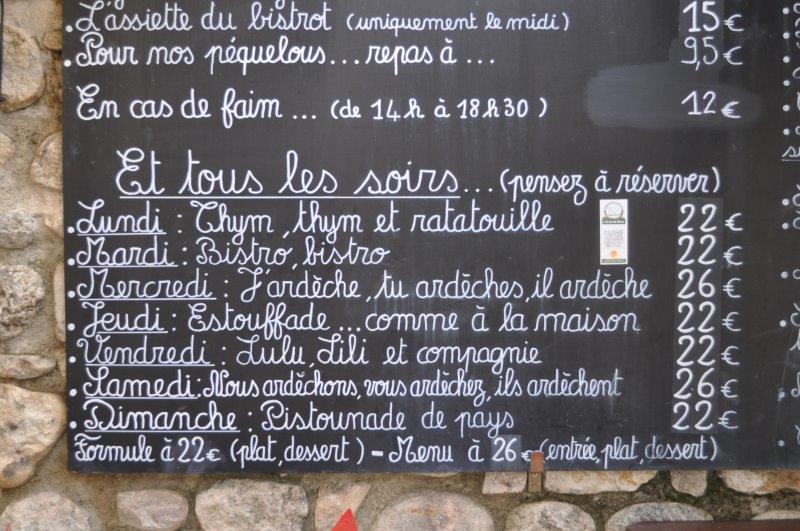 L'assiette du bistrot (uniquement le midi) 15€
.Pour nos péquelous...repas à ... 9,5€
En cas de faim ... (de 14h à 18h30 ) 12€
Et tous les soirs... (pensez à réserver)
.Lundi : Thym, thym et ratatouille 22€
.Mardi : Bistro, bistro 22€
.Mercredi : J'ardèche, tu ardèches, il ardèche 26€
.Jeudi : Estouffade ... comme à la maison 22€
.Vendredi : Lulu, Lili et compagnie 22€
.Samedi : Nous ardéchons, vous ardèchez, ils ardèchent 26€
.Dimanche : Pistounade de pays 22€
Formule à 22€ (plat, dessert ) - Menu à 26€ (entrée, plat, dessert)